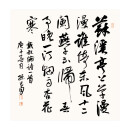 蘇溪亭上草漫
漫誰倚東風十二
闌燕子不歸春
事晚一汀烟雨杏花
寒
戴叔倫詩一首